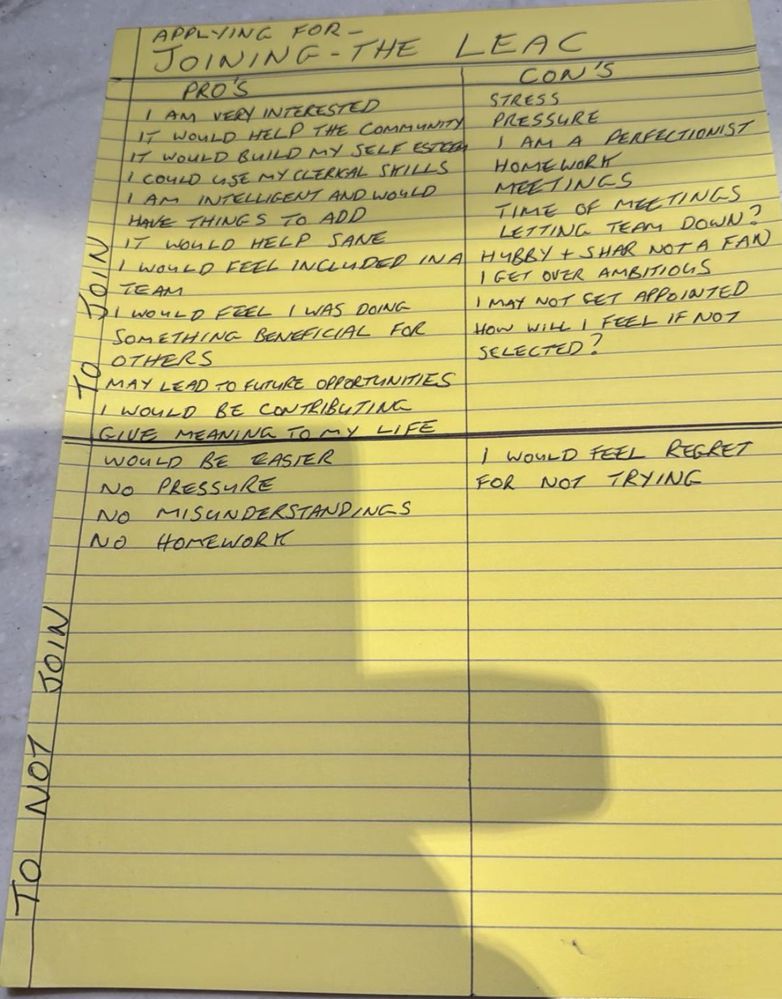 APPLYING FOR-
JOINING-THE LEAC
PRO'S
I AM VERY INTERESTED
IT WOULD HELP THE COMMUNITY
IT WOULD BUILD MY SELF ESTEEM
I COULD USE MY CLERICAL SKILLS
I AM INTELLIGENT AND WOULD
HAVE THINGS TO ADD
IT WOULD HELP SANE
I WOULD FEEL INCLUDED IN A
TEAM
I WOULD FEEL I WAS DOING
SOMETHING BENEFICIAL FOR
OTHERS
MAY LEAD TO FUTURE OPPORTUNITIES
I WOULD BE CONTRIBUTING
GIVE MEANING TO MY LIFE
CON'S
STRESS
PRESSURE
I AM A PERFECTIONIST
HOMEWORK
MEETINGS
TIME OF MEETINGS
LETTING TEAM DOWN?
HUBBY + SHAR NOT A FAN
I GET OVER AMBITIOUS
I MAY NOT GET APPOINTED
HOW WILL I FEEL IF NOT
SELECTED?
TO JOIN
WOULD BE EASIER
NO PRESSURE
NO MISUNDERSTANDINGS
NO HOMEWORK
I WOULD FEEL REGRET
FOR NOT TRYING
TO NOT JOIN